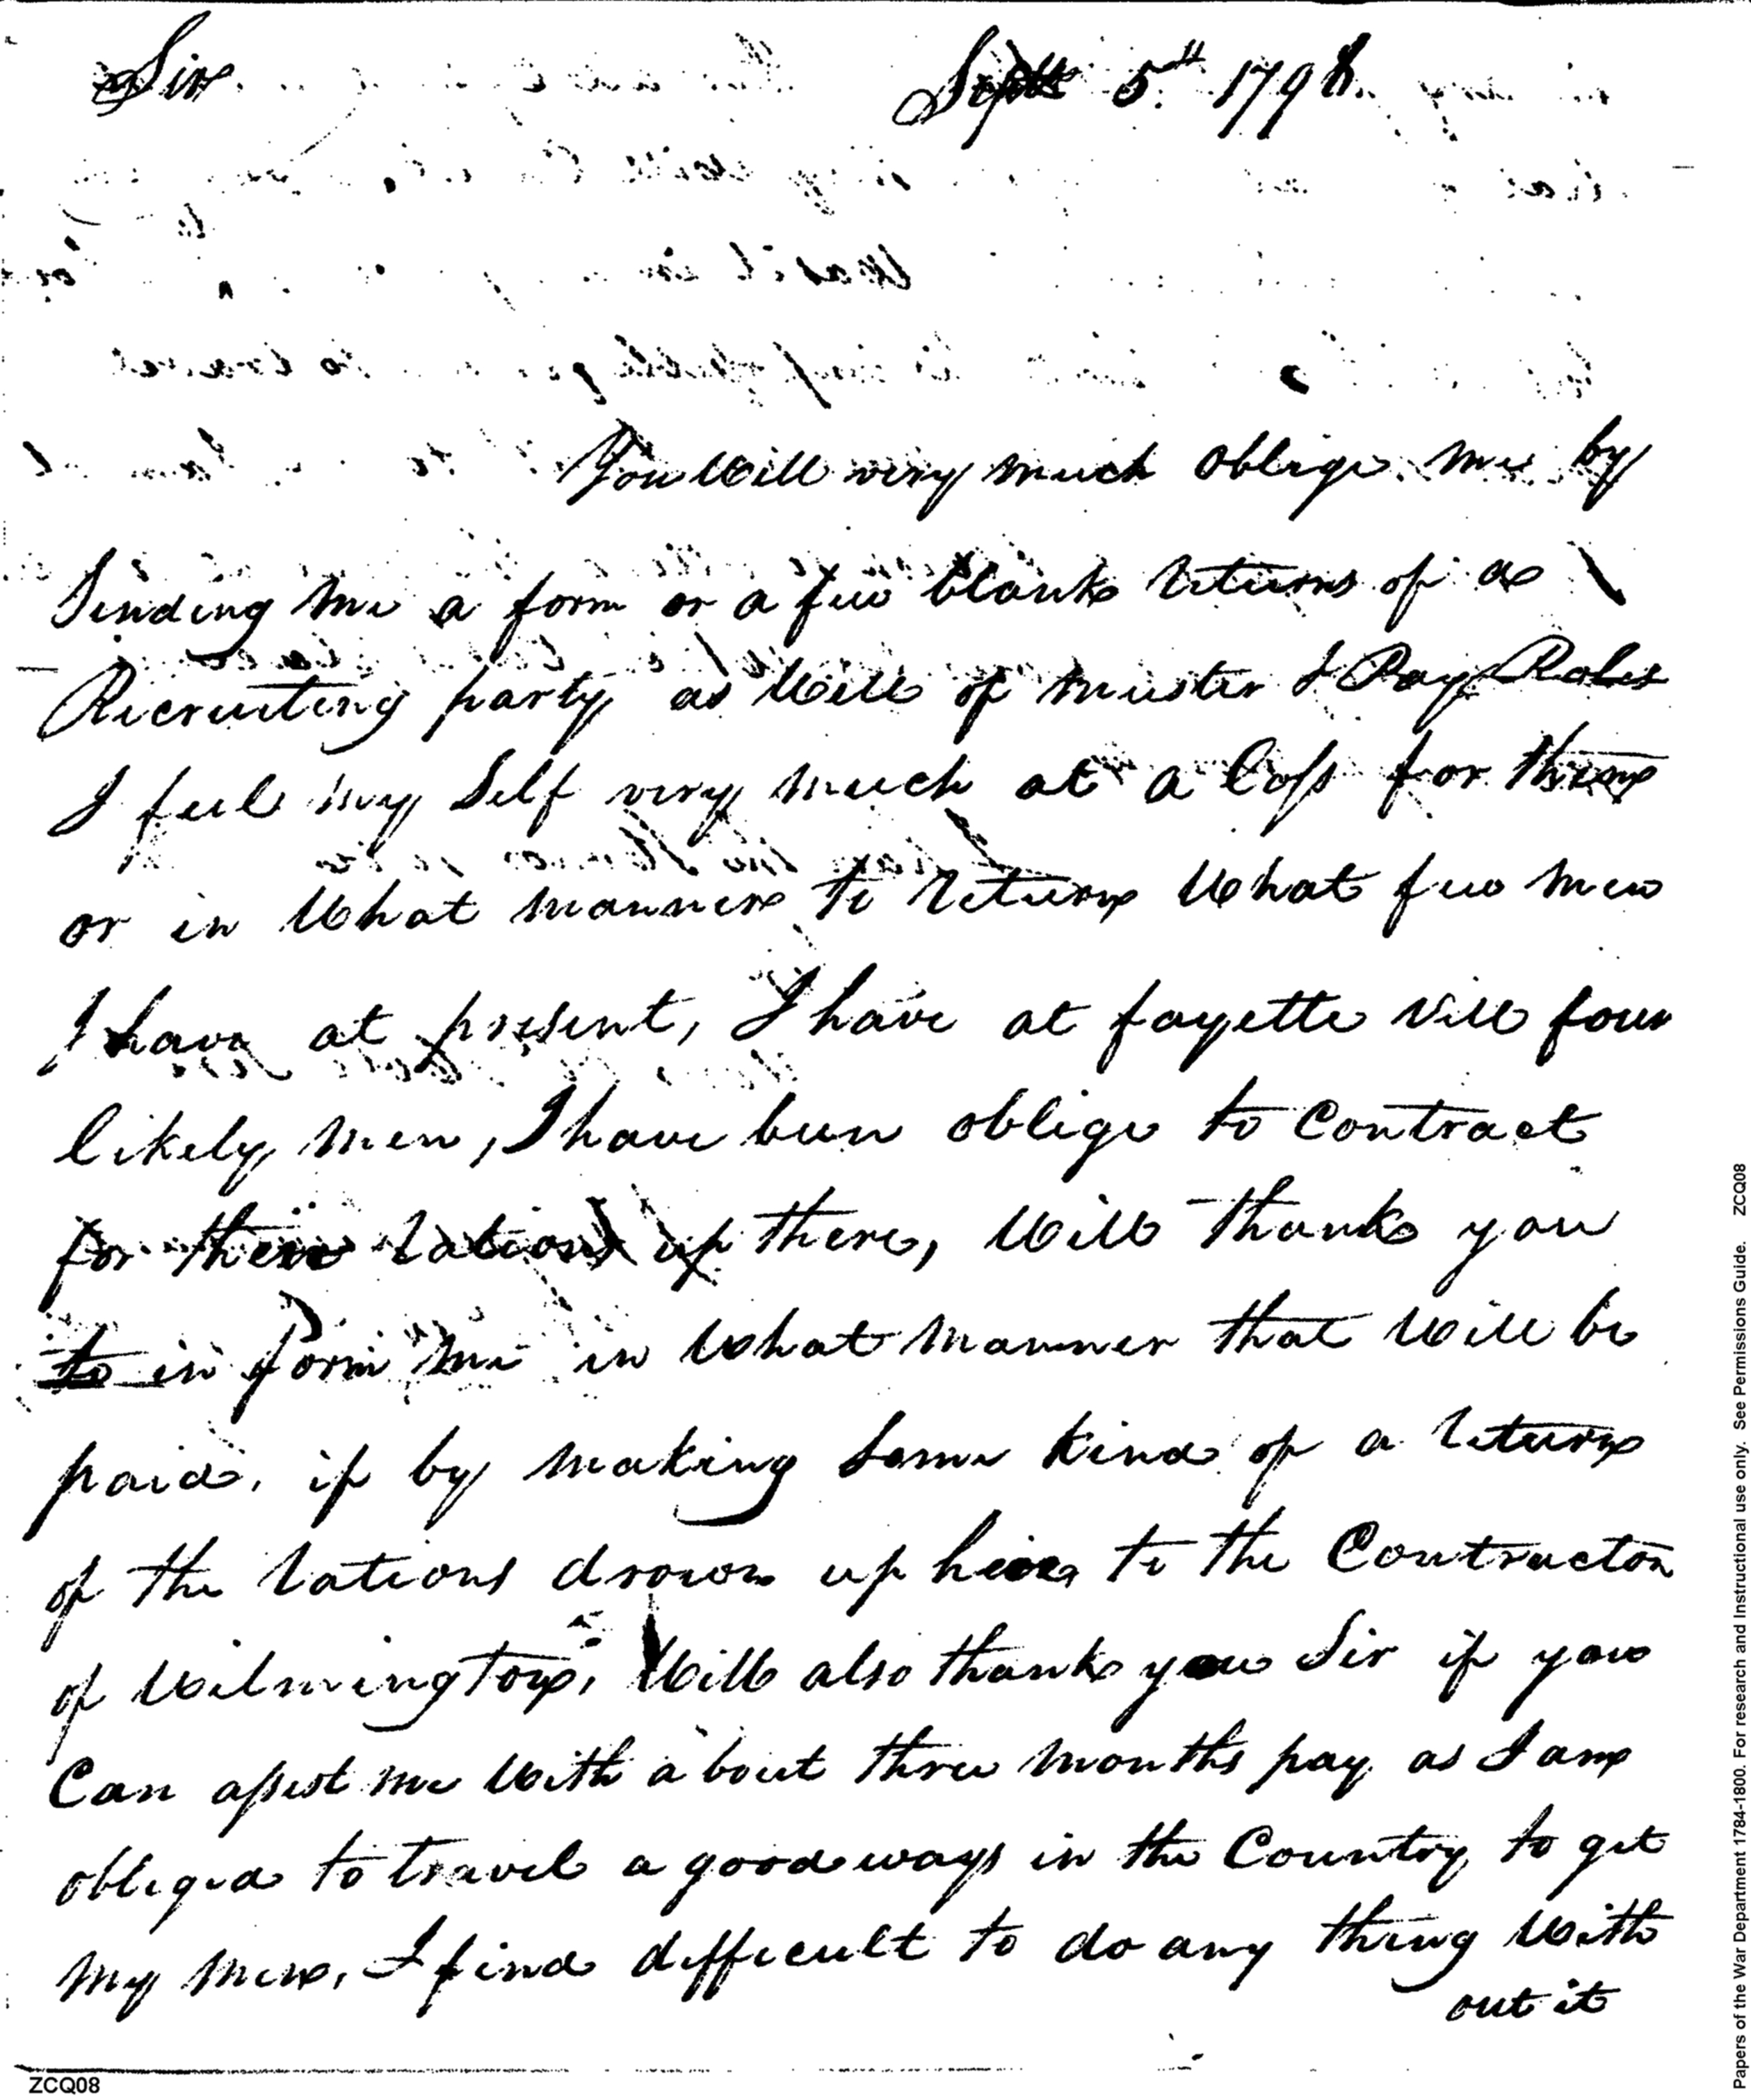 Sir Sept 5th 1798
You Will very much oblige me by
Sending me a form or a few blank returns of a
Recruiting party as Well of muster & Pay Roles
I feel my Self very much at a Loss for them
or in What manner to return What few men
I have at present, I have at fayette vill four
likely men, I have been oblige to Contract
for their rations up there, Will thank you
to in form me in What manner that Will be
paid, if by making Some kind of a return
of the rations drawn up here to the Contractor
of Wilmington, Will also thank you Sir if you
Can assist me With about three months pay as I am
obliged to travel a good ways in the Country to get
my men, I find difficult to do any thing With
out it
ZCQ08
Papers of the War Department 1784-1800. For research and Instructional use only. See Permissions Guide. ZCQ08